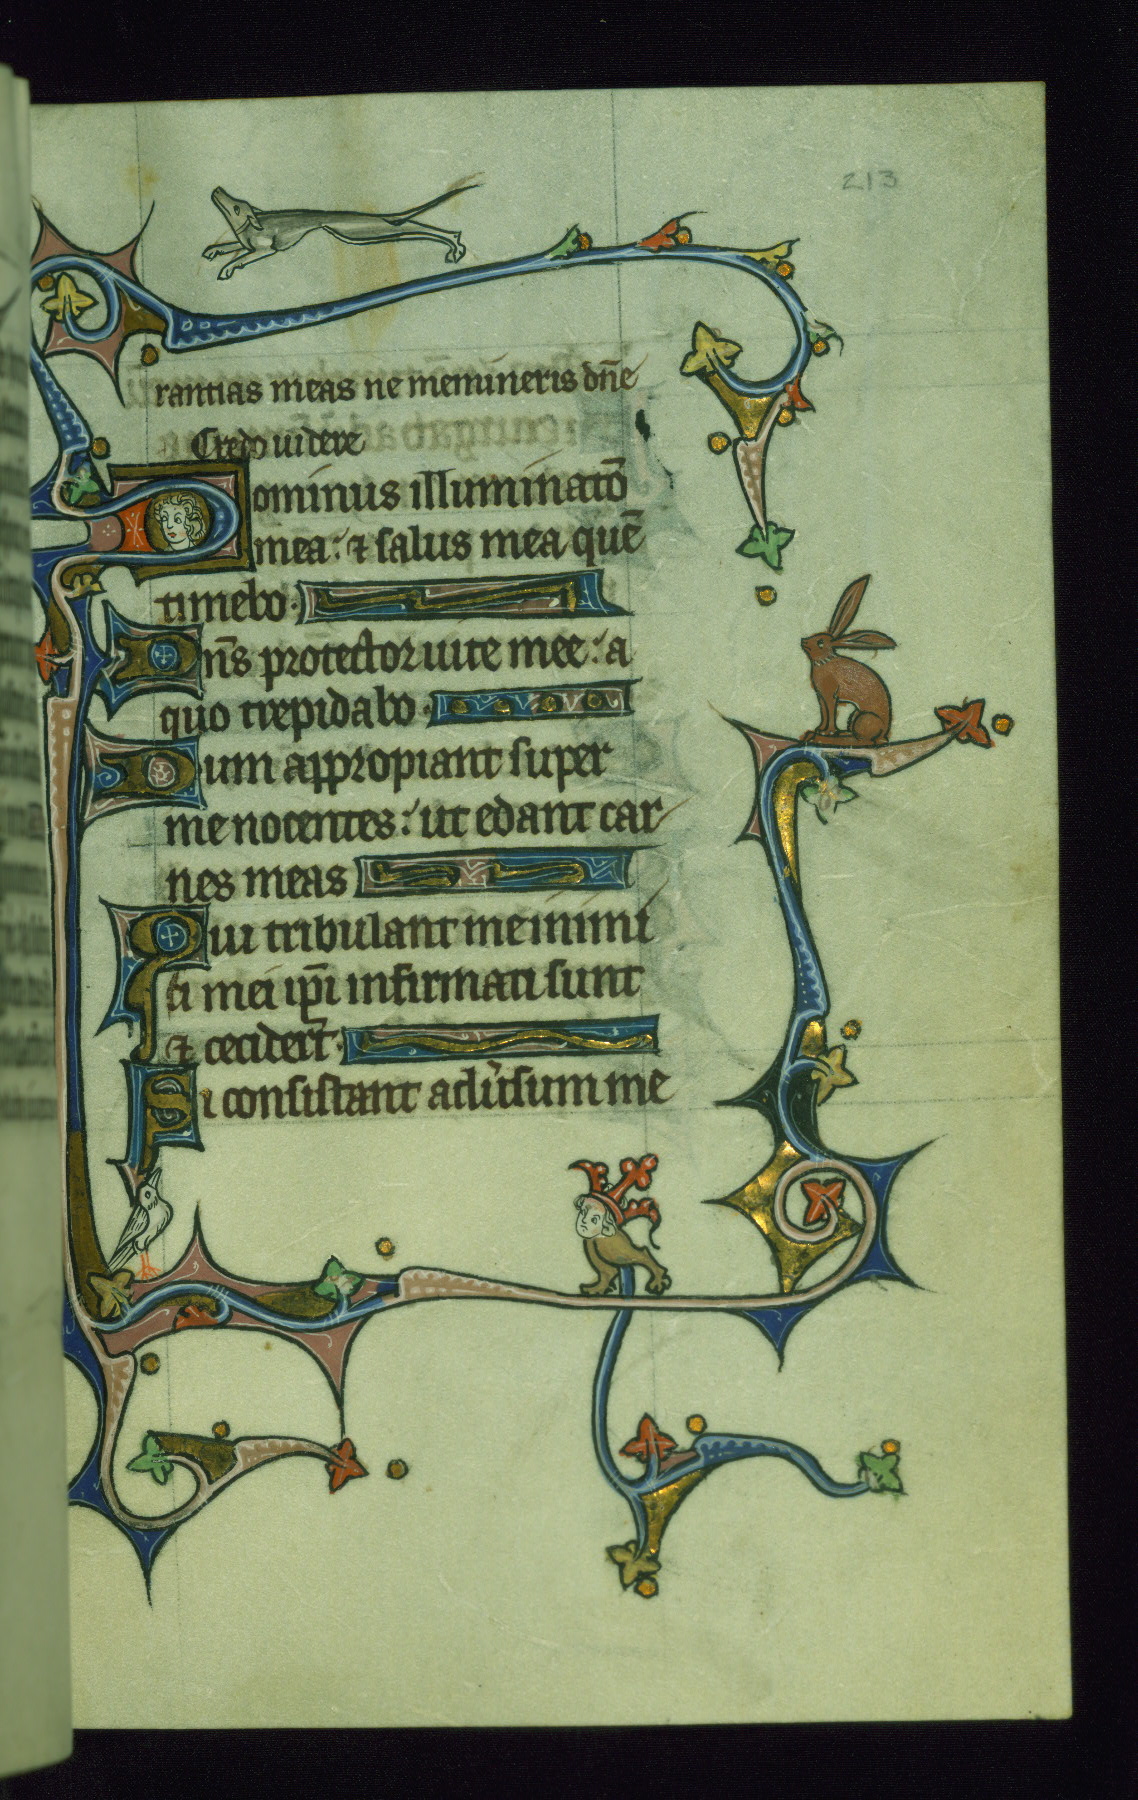 213
rantias meas ne memineris dn̄e
Credo uidere
Dominus illuminatō
mea: ⁊ salus mea quē
timebo.
Dn̄s protector uite mee: a
quo trepidabo.
Dum appropiant super
me nocentes: ut edant car
nes meas
Qui tribulant me inimi
ci mei ip̄i infirmati sunt
⁊ cecider̄t.
Si consistant adu̓sum me